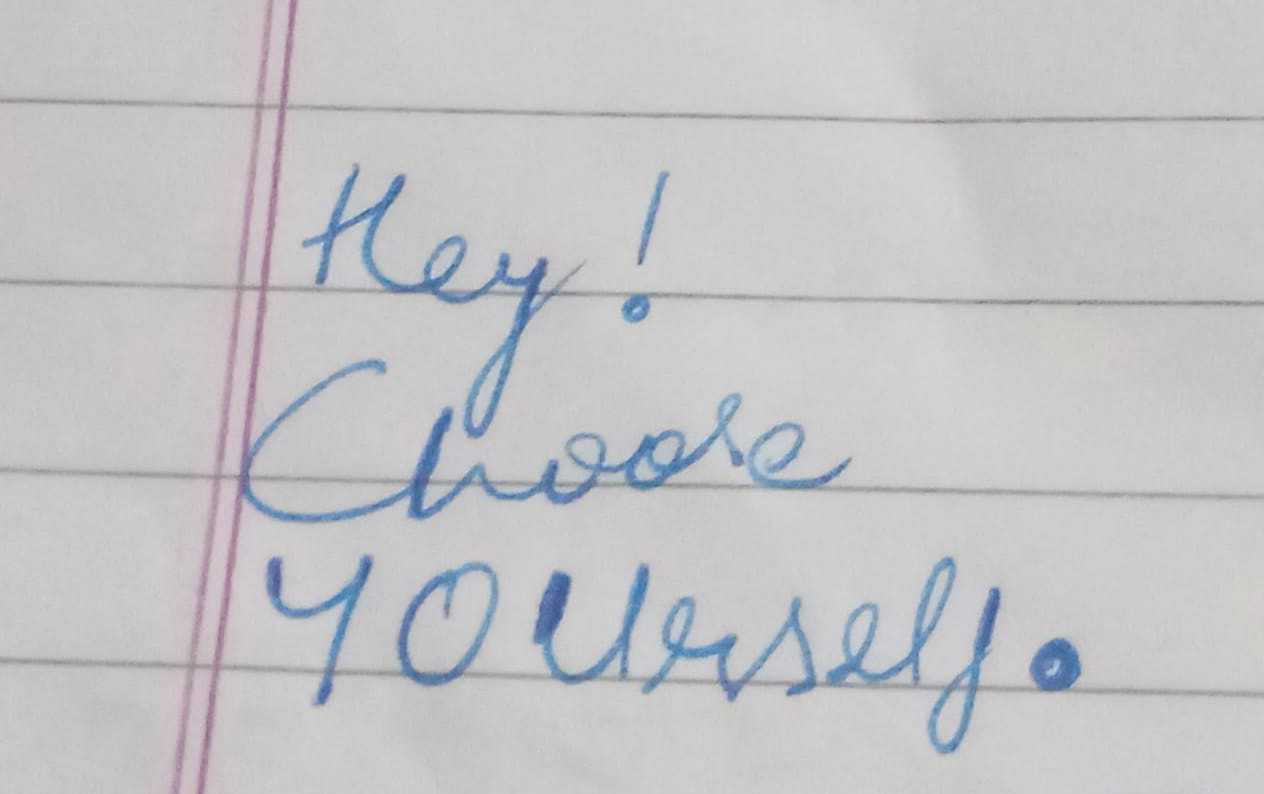 Hey!
Choose
YOUrself.